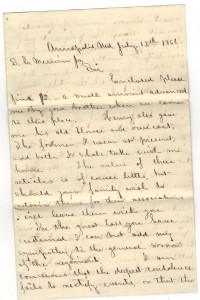 Annapolis, Md July 12th 186
D. E. Merriam
Sir
Enclosed please
find $2. a small amount advanced
me by your brother when we came
to this place. Henry also gave
me his old blouse and overcoat.
The former I wear at present,
and both I shall take with me
home. The value of these
articles is of course little, but
should your family wish to
retain them for their associations
I will leave them with you.
In the great loss you have
sustained I can but add my
sympathy to the general sorrow
of the regiment. I am
conscious that the deepest condolence
fails to rectify events, or that the